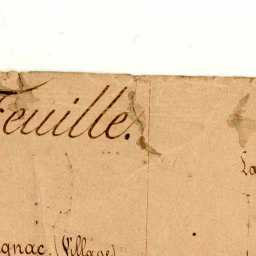 Feuille.
La
gnac. (Village)